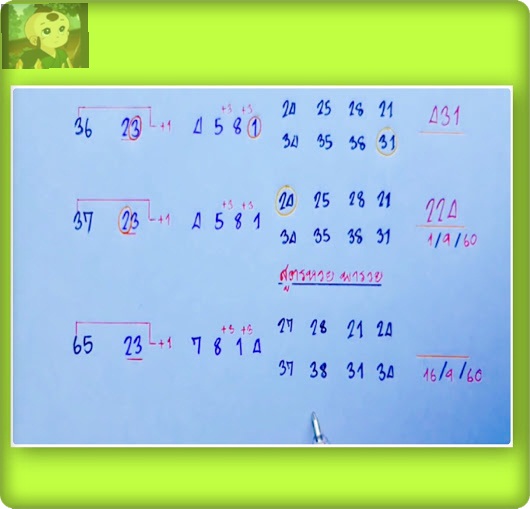 +3 +3 24 25 28 21 431
36 23 +1 4 5 8 1 34 35 38 31
+3 +3 24 25 28 21 224
37 23 +1 4 5 8 1 34 35 38 31 1/9/60
สูตรหวย พารวย
+3 +3 27 28 21 24
65 23 +1 7 8 1 4 37 38 31 34 16/9/60